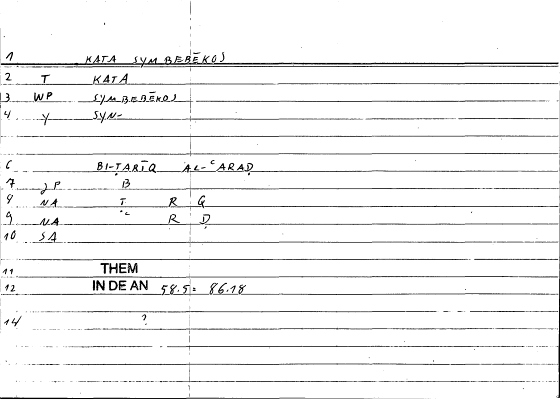 1 KATA SYMBEBĒKOS
2 T KATA
3 WP SYMBEBĒKOS
4 Y SYN-
6 BI-ṬARĪQ AL-ʿARAḌ
7 JP B
8 NA Ṭ R Q
9 NA ʿ R Ḍ
10 SA
11 THEM
12 IN DE AN 58.5 = 86.18
14 ?